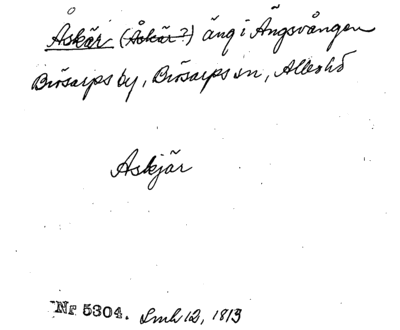 Åskär (Åskär?) äng i Ängsvången
Brösarps by, Brösarps sn, Albo hd
Askjär
Nr 5304. Lmh 12, 1813